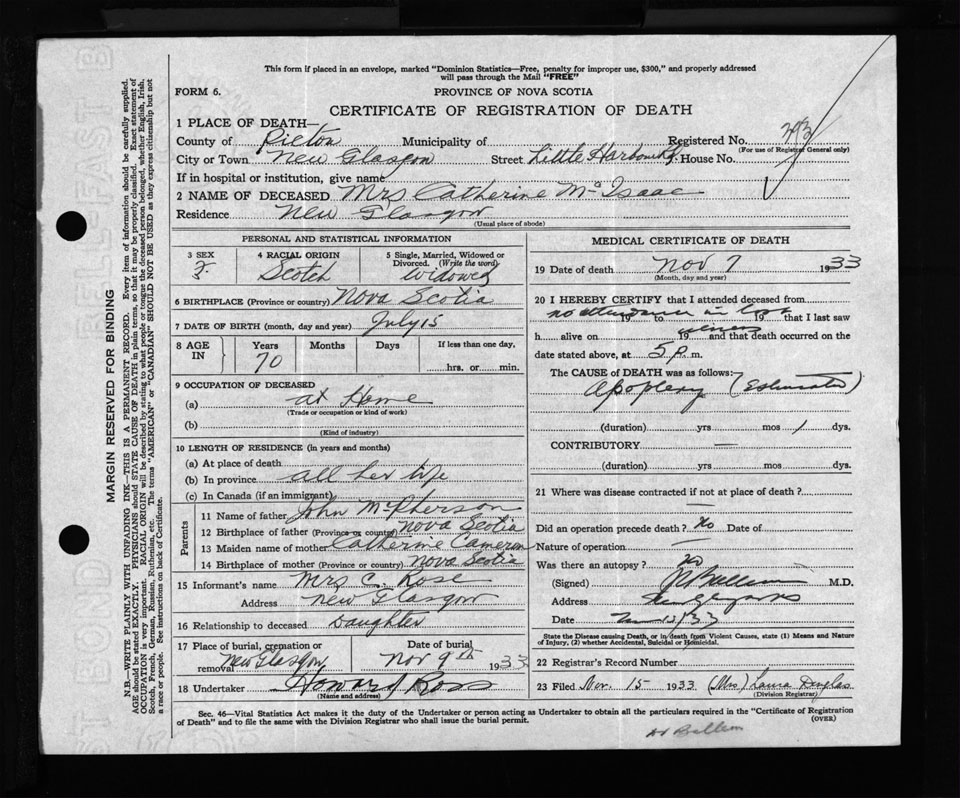 This form if placed in an envelope, marked "Dominion Statistics—Free, penalty for improper use, $300," and properly addressed
will pass through the Mail "FREE"
FORM 6.
PROVINCE OF NOVA SCOTIA
CERTIFICATE OF REGISTRATION OF DEATH
1 PLACE OF DEATH—
County of Pictou Municipality of Registered No.
(For use of Registrar General only)
City or Town New Glasgow Street Little Harbour Rd. House No.
If in hospital or institution, give name
2 NAME OF DECEASED Mrs Catherine McIsaac
Residence New Glasgow
(Usual place of abode)
PERSONAL AND STATISTICAL INFORMATION
3 SEX F
4 RACIAL ORIGIN Scotch
5 Single, Married, Widowed or Divorced. (Write the word) Widowed
6 BIRTHPLACE (Province or country) Nova Scotia
7 DATE OF BIRTH (month, day and year) July 15
8 AGE IN Years Months Days If less than one day,
70 hrs. or min.
9 OCCUPATION OF DECEASED
(a) at Home
(Trade or occupation or kind of work)
(b)
(Kind of industry)
10 LENGTH OF RESIDENCE (in years and months)
(a) At place of death
(b) In province all her life
(c) In Canada (if an immigrant)
Parents
11 Name of father John McPherson
12 Birthplace of father (Province or country) Nova Scotia
13 Maiden name of mother Catherine Cameron
14 Birthplace of mother (Province or country) Nova Scotia
15 Informant's name Mrs C. Rose
Address New Glasgow
16 Relationship to deceased Daughter
17 Place of burial, cremation or removal New Glasgow
Date of burial Nov 9th 1933
18 Undertaker Howard Ross
(Name and address)
MEDICAL CERTIFICATE OF DEATH
19 Date of death Nov 7 1933
(Month, day and year)
20 I HEREBY CERTIFY that I attended deceased from
no attendance in last 19 to 19 that I last saw
h alive on illness 19 and that death occurred on the
date stated above, at 5 p. m.
The CAUSE of DEATH was as follows:
Apoplexy (Estimated)
(duration) yrs mos 1 dys.
CONTRIBUTORY —
(duration) yrs mos dys.
21 Where was disease contracted if not at place of death?
—
Did an operation precede death? No Date of
Nature of operation —
Was there an autopsy? No
(Signed) M.D.
Address
Date
State the Disease causing Death, or in death from Violent Causes, state (1) Means and Nature
of Injury, (2) whether Accidental, Suicidal or Homicidal.
22 Registrar's Record Number
23 Filed Nov. 15 1933 (Mrs) Laura Douglas
(Division Registrar)
Sec. 46—Vital Statistics Act makes it the duty of the Undertaker or person acting as Undertaker to obtain all the particulars required in the "Certificate of Registration
of Death" and to file the same with the Division Registrar who shall issue the burial permit. (OVER)
MARGIN RESERVED FOR BINDING
N.B.—WRITE PLAINLY WITH UNFADING INK—THIS IS A PERMANENT RECORD. Every item of information should be carefully supplied.
AGE should be stated EXACTLY. PHYSICIANS should STATE CAUSE OF DEATH in plain terms, so that it may be properly classified. Exact statement of
OCCUPATION is very important. RACIAL ORIGIN will be described by stating to what people or tongue the deceased person belonged, whether English, Irish,
Scotch, French, German, Russian, Ruthenian, etc. The terms "AMERICAN" or "CANADIAN" SHOULD NOT BE USED as they express citizenship but not
a race or people. See instructions on back of Certificate.